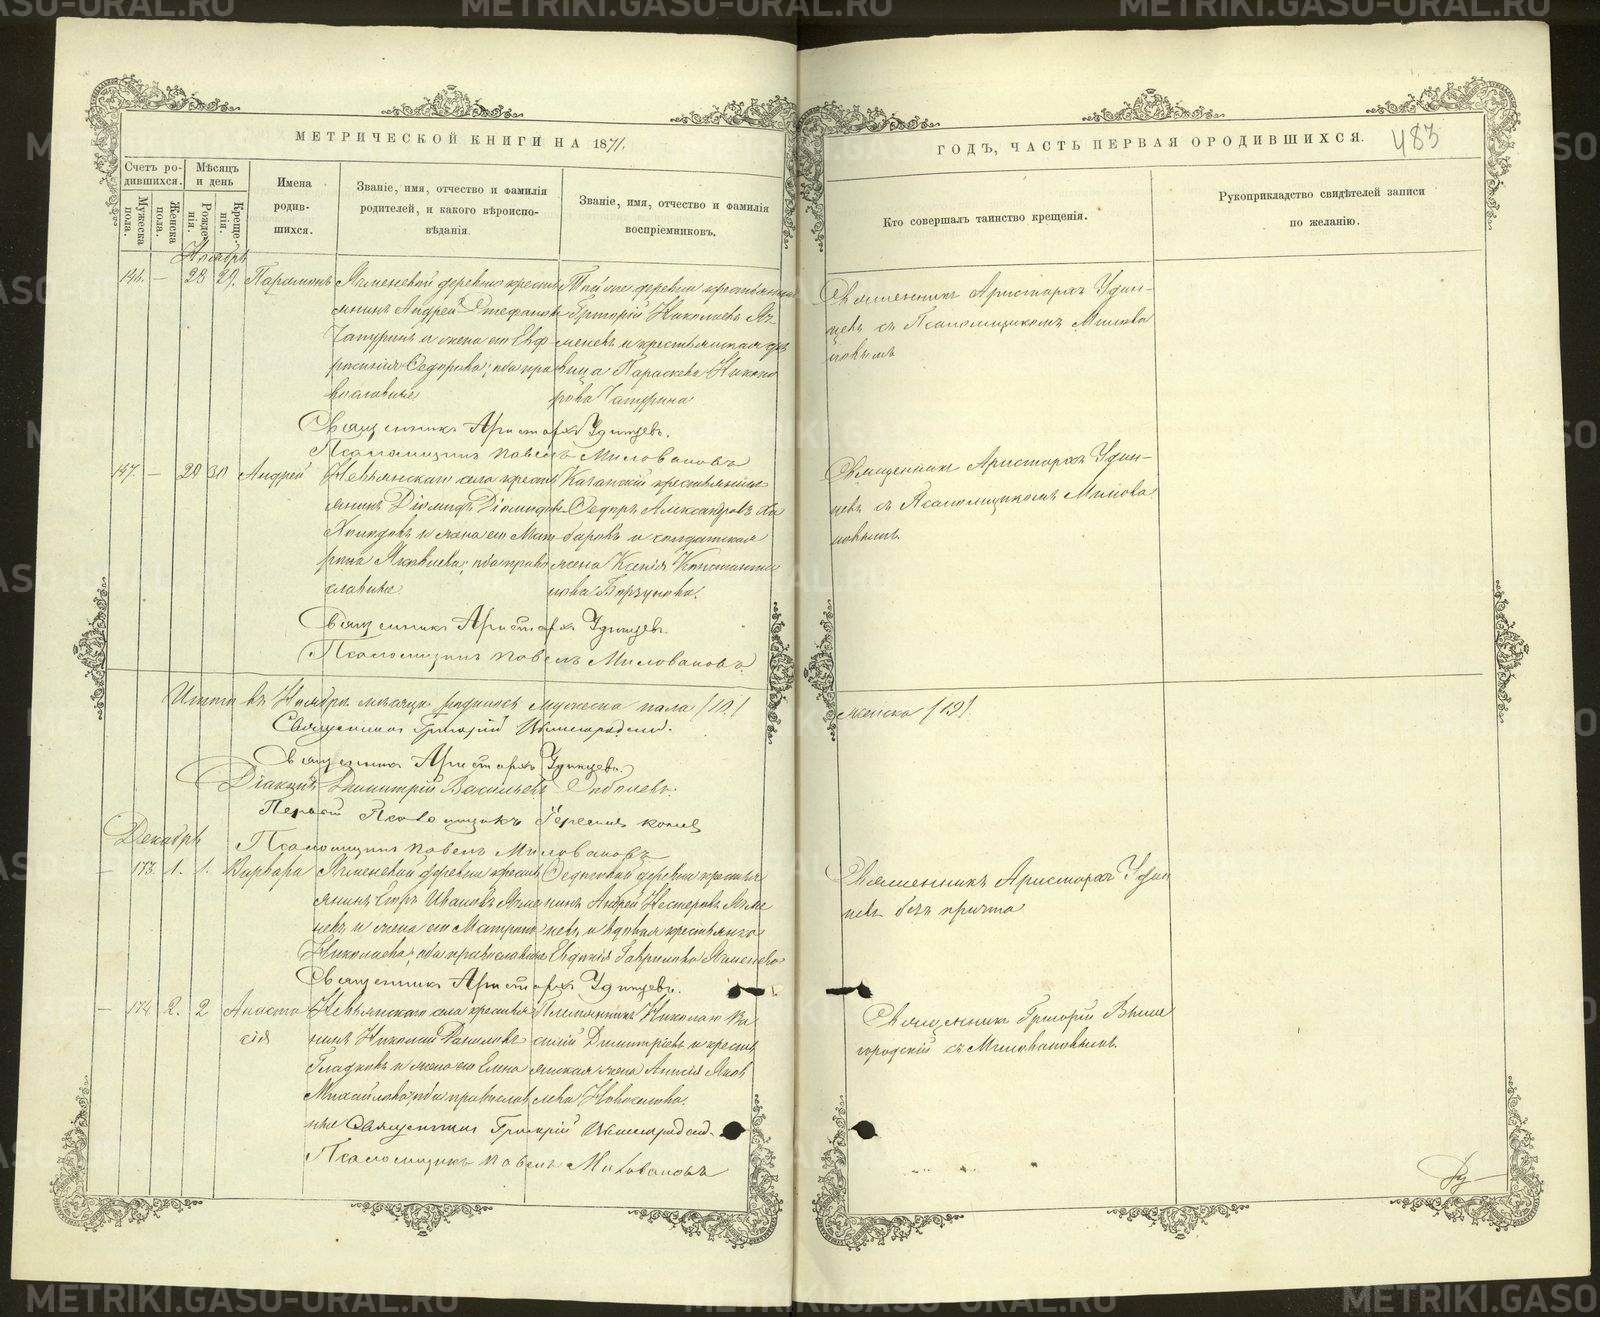 МЕТРИЧЕСКОЙ КНИГИ НА 1871.
ГОДЪ, ЧАСТЬ ПЕРВАЯ О РОДИВШИХСЯ.
483
Счетъ родившихся.
Мужеска пола.
Женска пола.
Мѣсяцъ и день
Рожденія.
Крещенія.
Имена
родив-
шихся.
Званіе, имя, отчество и фамилія
родителей, и какого вѣроиспо-
вѣданія.
Званіе, имя, отчество и фамилія
воспріемниковъ.
Кто совершалъ таинство крещенія.
Рукоприкладство свидѣтелей записи
по желанію.
Ноябрь
146. — 28 29. Парамонъ
деревни крестья
янинъ Андрей Стефановъ
Чапуринъ и жена его Евф
росинія Ѳедорова; оба пра
вославные
Той же деревни крестьянинъ
Григорій Николаевъ Яч
меневъ и крестьянская дѣ
вица Параскева Никано
рова Чапурина
Священникъ Аристархъ Удин-
цевъ съ Псаломщикомъ Милова
новымъ
Священникъ Аристархъ Удинцевъ.
Псаломщикъ Павелъ Миловановъ
147. — 29 30 Андрей
Невьянскаго села крестья
янинъ Діомидъ Діомидовъ
и жена его Мат
рона Матвиева; оба право
славные
крестьянинъ
Ѳедоръ Александровъ
и солдатская
жена Ксенія Константи
нова
Священникъ Аристархъ Удин-
цевъ съ Псаломщикомъ Милова
новымъ.
Священникъ Аристархъ Удинцевъ.
Псаломщикъ Павелъ Миловановъ
Итого въ Ноябрѣ мѣсяцѣ родилось мужеска пола /10/
женска /19/
Священникъ Григорій Вышегородскій.
Священникъ Аристархъ Удинцевъ.
Діаконъ Димитрій Васильевъ
Первый Псаломщикъ
Декабрь
Псаломщикъ Павелъ Миловановъ
— 173. 1. 1. Варвара
Ячменевой деревни крестья
янинъ Егоръ Ивановъ Ячме
невъ и жена его Матрона
Николаева; оба православные
деревни крестья
нинъ Андрей Нестеровъ Ячме
невъ и вдовая крестьянка
Евдокія Гаврилова Ячменева
Священникъ Аристархъ Удин
цевъ безъ причта
Священникъ Аристархъ Удинцевъ.
— 174. 2. 2 Анаста
сія
Невьянскаго села крестья
нинъ Николай Даниловъ
Гладковъ и жена его Елена
Михайлова; оба православ
ные
Племянникъ Николаю Ва
силій Дмитріевъ и крестья
янская жена Анисія Яков
лева Новоселова.
Священникъ Григорій Выше
городскій съ Миловановымъ.
Священникъ Григорій Вышегородскій.
Псаломщикъ Павелъ Миловановъ
METRIKI.GASU-URAL.RU